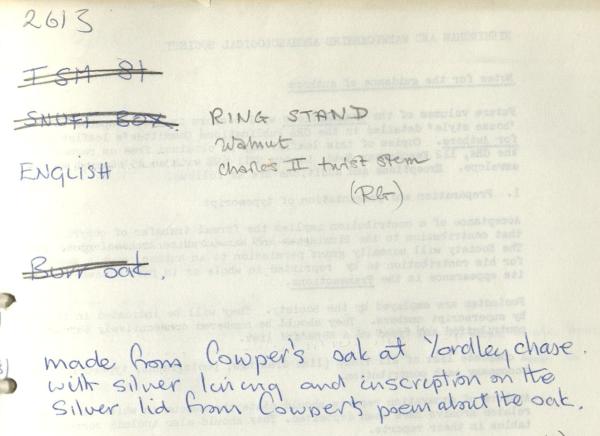 2613
ISM 81
SNUFF BOX. RING STAND
Walnut
ENGLISH Charles II twist stem
(RG)
Burr oak.
made from Cowper's oak at Yardley chase.
with silver lining and inscription on the
silver lid from Cowper's poem about the oak.